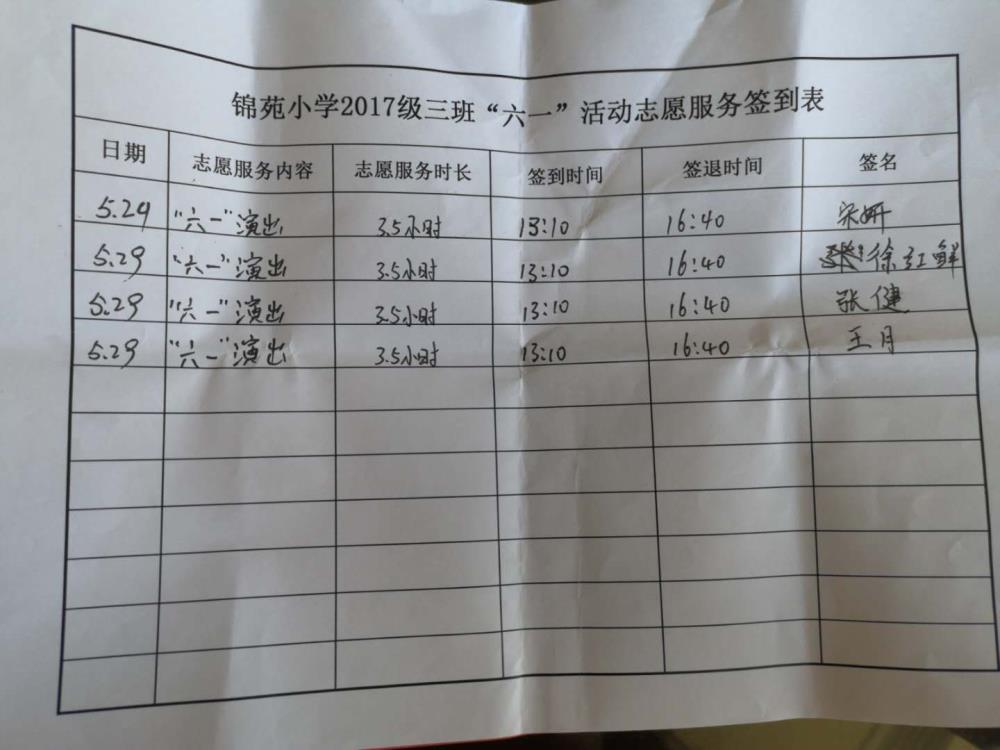 锦苑小学2017级三班“六一”活动志愿服务签到表
日期 志愿服务内容 志愿服务时长 签到时间 签退时间 签名
5.29 “六一”演出 3.5小时 13:10 16:40 宋妍
5.29 “六一”演出 3.5小时 13:10 16:40 徐红鲜
5.29 “六一”演出 3.5小时 13:10 16:40 张健
5.29 “六一”演出 3.5小时 13:10 16:40 王月